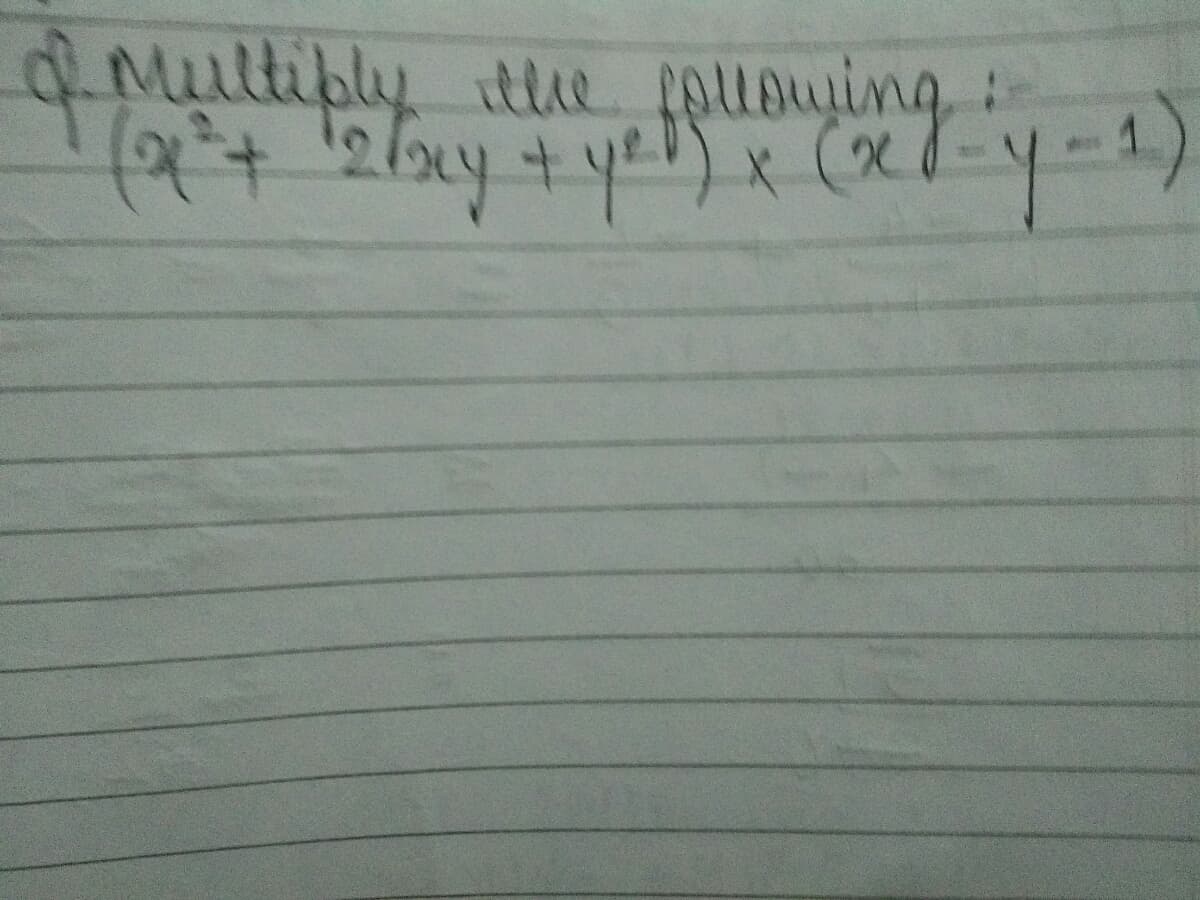 Q. Multiply the following :-
(x² + 2xy + y²) × (x - y - 1)